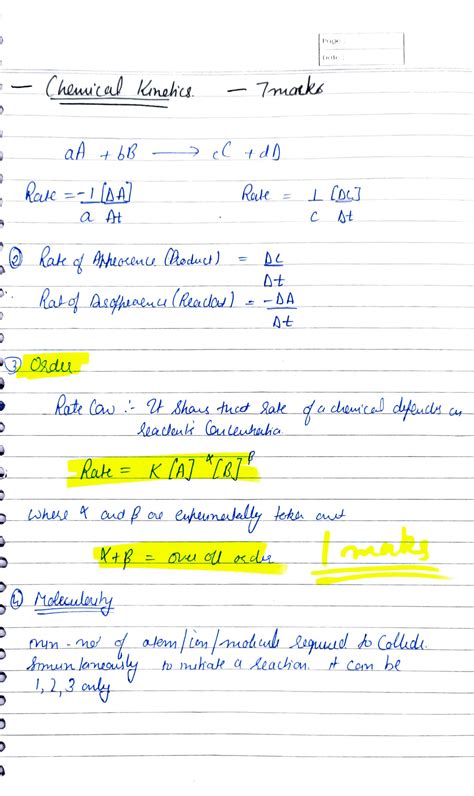 Page:
Date:
— Chemical Kinetics. — 7 marks
aA + bB ⟶ cC + dD
Rate = -1/a [ΔA]/Δt    Rate = 1/c [ΔC]/Δt
② Rate of Appearence (Product) = ΔC/Δt
Rat of Disappearence (Reactant) = -ΔA/Δt
③ Order
Rate Law :- It shows that rate of a chemical depends on
reactants Concentration.
Rate = K [A]^α [B]^β
where α and β are experimentally taken out
α+β = over all order    1 marks
④ Molecularity
min. no. of atom/ion/molecule required to Collide
Simuntaneously to initiate a reaction. it can be
1, 2, 3 only